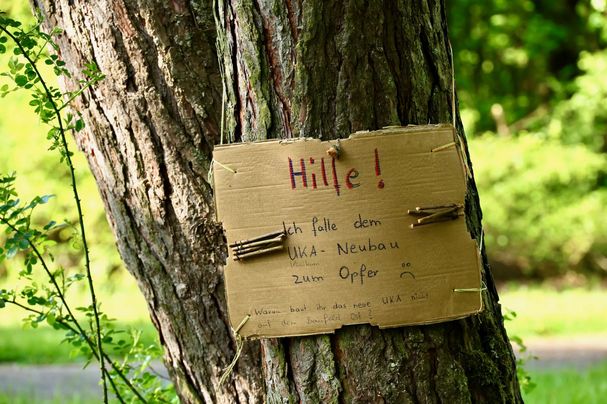 Hilfe!
Ich falle dem
UKA-Neubau
zum Opfer ☹
Warum baut ihr das neue UKA nicht
auf dem Baufeld Ost?